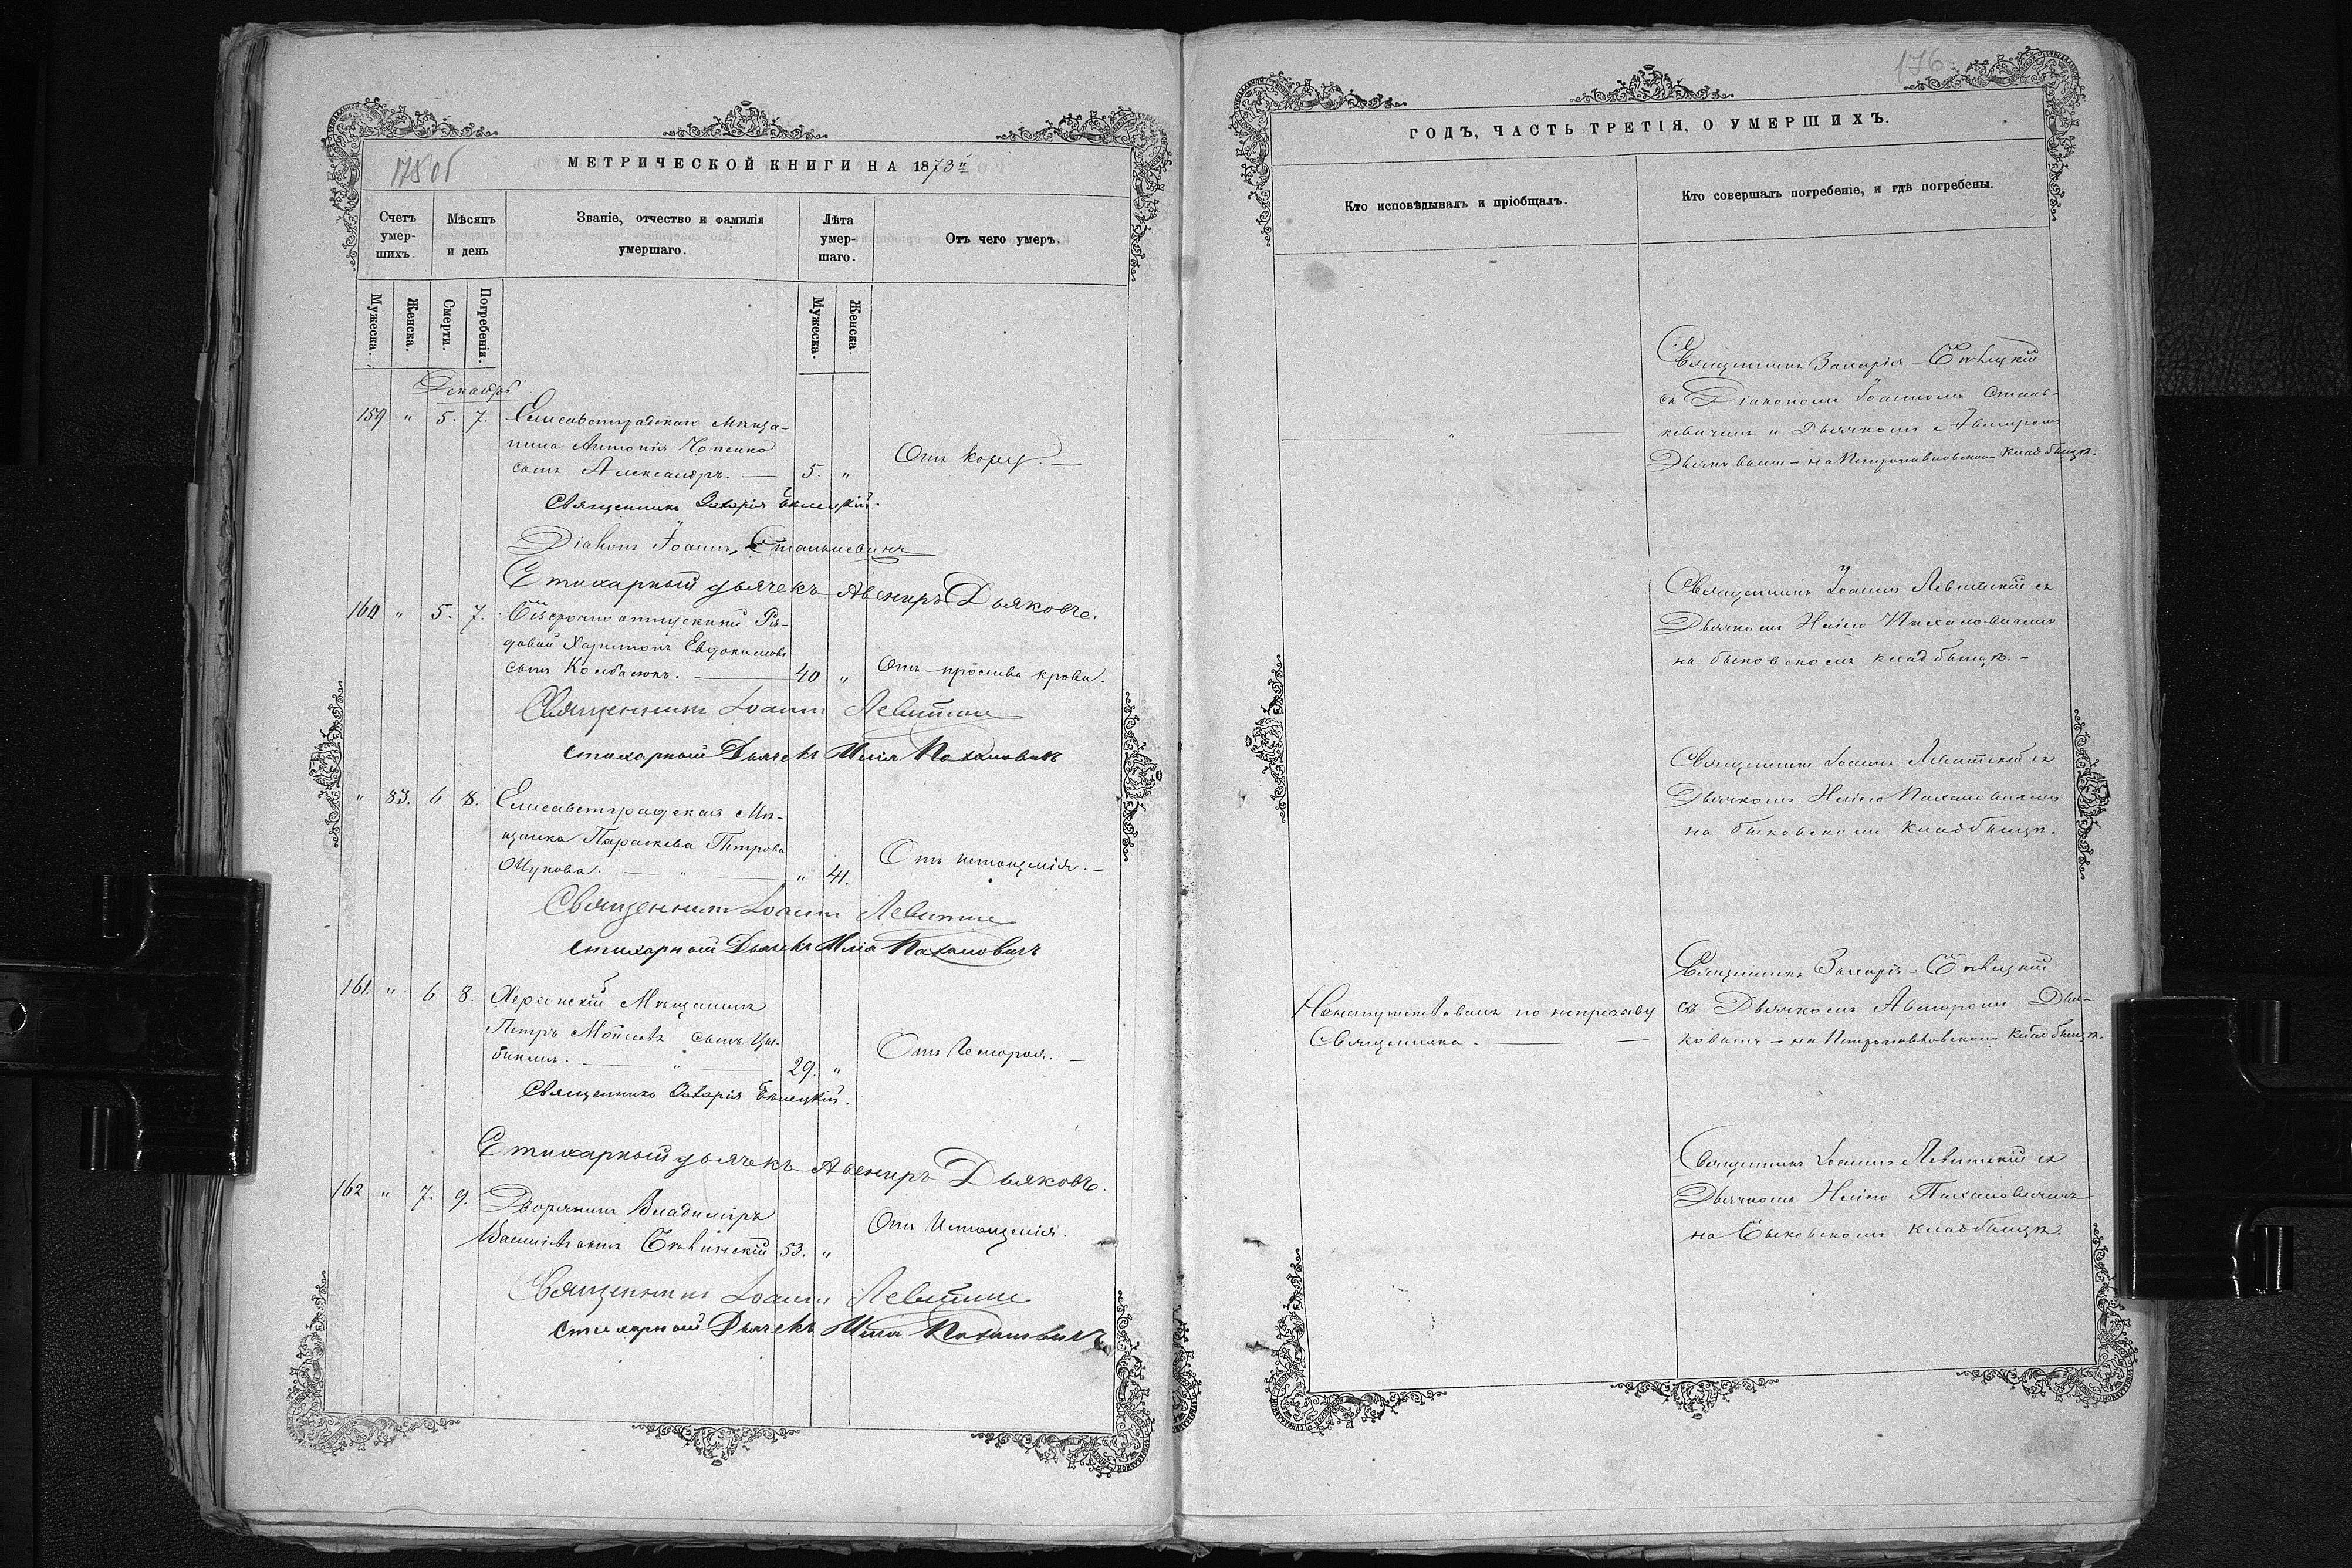 175об
МЕТРИЧЕСКОЙ КНИГИ НА 1873й
Счетъ умер-шихъ.
Мѣсяцъ и день
Званіе, отчество и фамилія умершаго.
Лѣта умер-шаго.
Отъ чего умеръ.
Мужеска.
Женска.
Смерти.
Погребенія.
Мужеска.
Женска.
Декабрь
159 " 5. 7. Елисаветградскаго Мѣща-
нина Антонія
сынъ Александръ. — 5. " Отъ кору. —
Священникъ Захарія Бѣлецкій.
Діаконъ Іоаннъ Станкевичъ
Стихарный дьячекъ Авениръ Дьяковъ.
160 " 5. 7. Безсрочно отпускной Ря-
довой Харитонъ Евдокимовъ
сынъ — 40 " Отъ прилива крови.
Священникъ Іоаннъ Левитскій
Стихарный Дьячекъ Илія Пахаловичъ
" 83. 6 8. Елисаветградская Мѣ-
щанка Параскева Петрова
— " — " 41. Отъ истощенія. —
Священникъ Іоаннъ Левитскій
Стихарный Дьячекъ Илія Пахаловичъ
161. " 6 8. Херсонскій Мѣщанинъ
Петръ Моисеевъ сынъ Цы-
— " — 29. " Отъ Гемороя. —
Священникъ Захарія Бѣлецкій.
Стихарный дьячекъ Авениръ Дьяковъ.
162 " 7. 9. Дворянинъ Владиміръ
53. " Отъ Истощенія.
Священникъ Іоаннъ Левитскій
Стихарный Дьячекъ Илія Пахаловичъ
176
ГОДЪ, ЧАСТЬ ТРЕТІЯ, О УМЕРШИХЪ.
Кто исповѣдывалъ и пріобщалъ.
Кто совершалъ погребеніе, и гдѣ погребены.
Священникъ Захарія Бѣлецкій
съ Діакономъ Іоанномъ Стань-
кевичемъ и Дьячкомъ Авениромъ
Дьяковымъ – на Петропавловскомъ Кладбищѣ.
Священникъ Іоаннъ Левитскій съ
Дьячкомъ Иліею Пахаловичемъ
на Быковскомъ кладбищѣ. –
Священникъ Іоаннъ Левитскій съ
Дьячкомъ Иліею Пахаловичемъ
на Быковскомъ Кладбищѣ.
Ненапутствованъ по непризыву
Священника. — —
Священникъ Захарія Бѣлецкій
съ Дьячкомъ Авениромъ Дья-
ковымъ – на Петропавловскомъ Кладбищѣ.
Священникъ Іоаннъ Левитскій съ
Дьячкомъ Иліею Пахаловичемъ
на Быковскомъ Кладбищѣ.